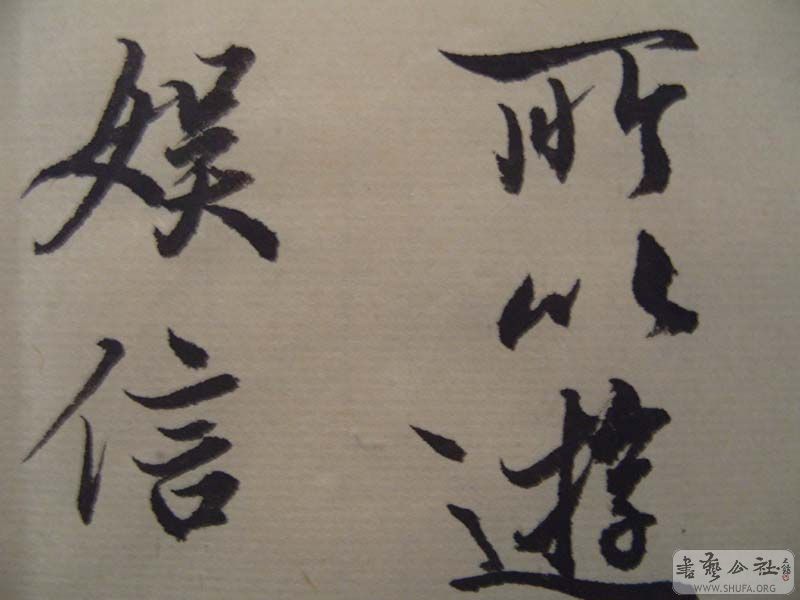 所以遊
娱信
書藝公社
WWW.SHUFA.ORG